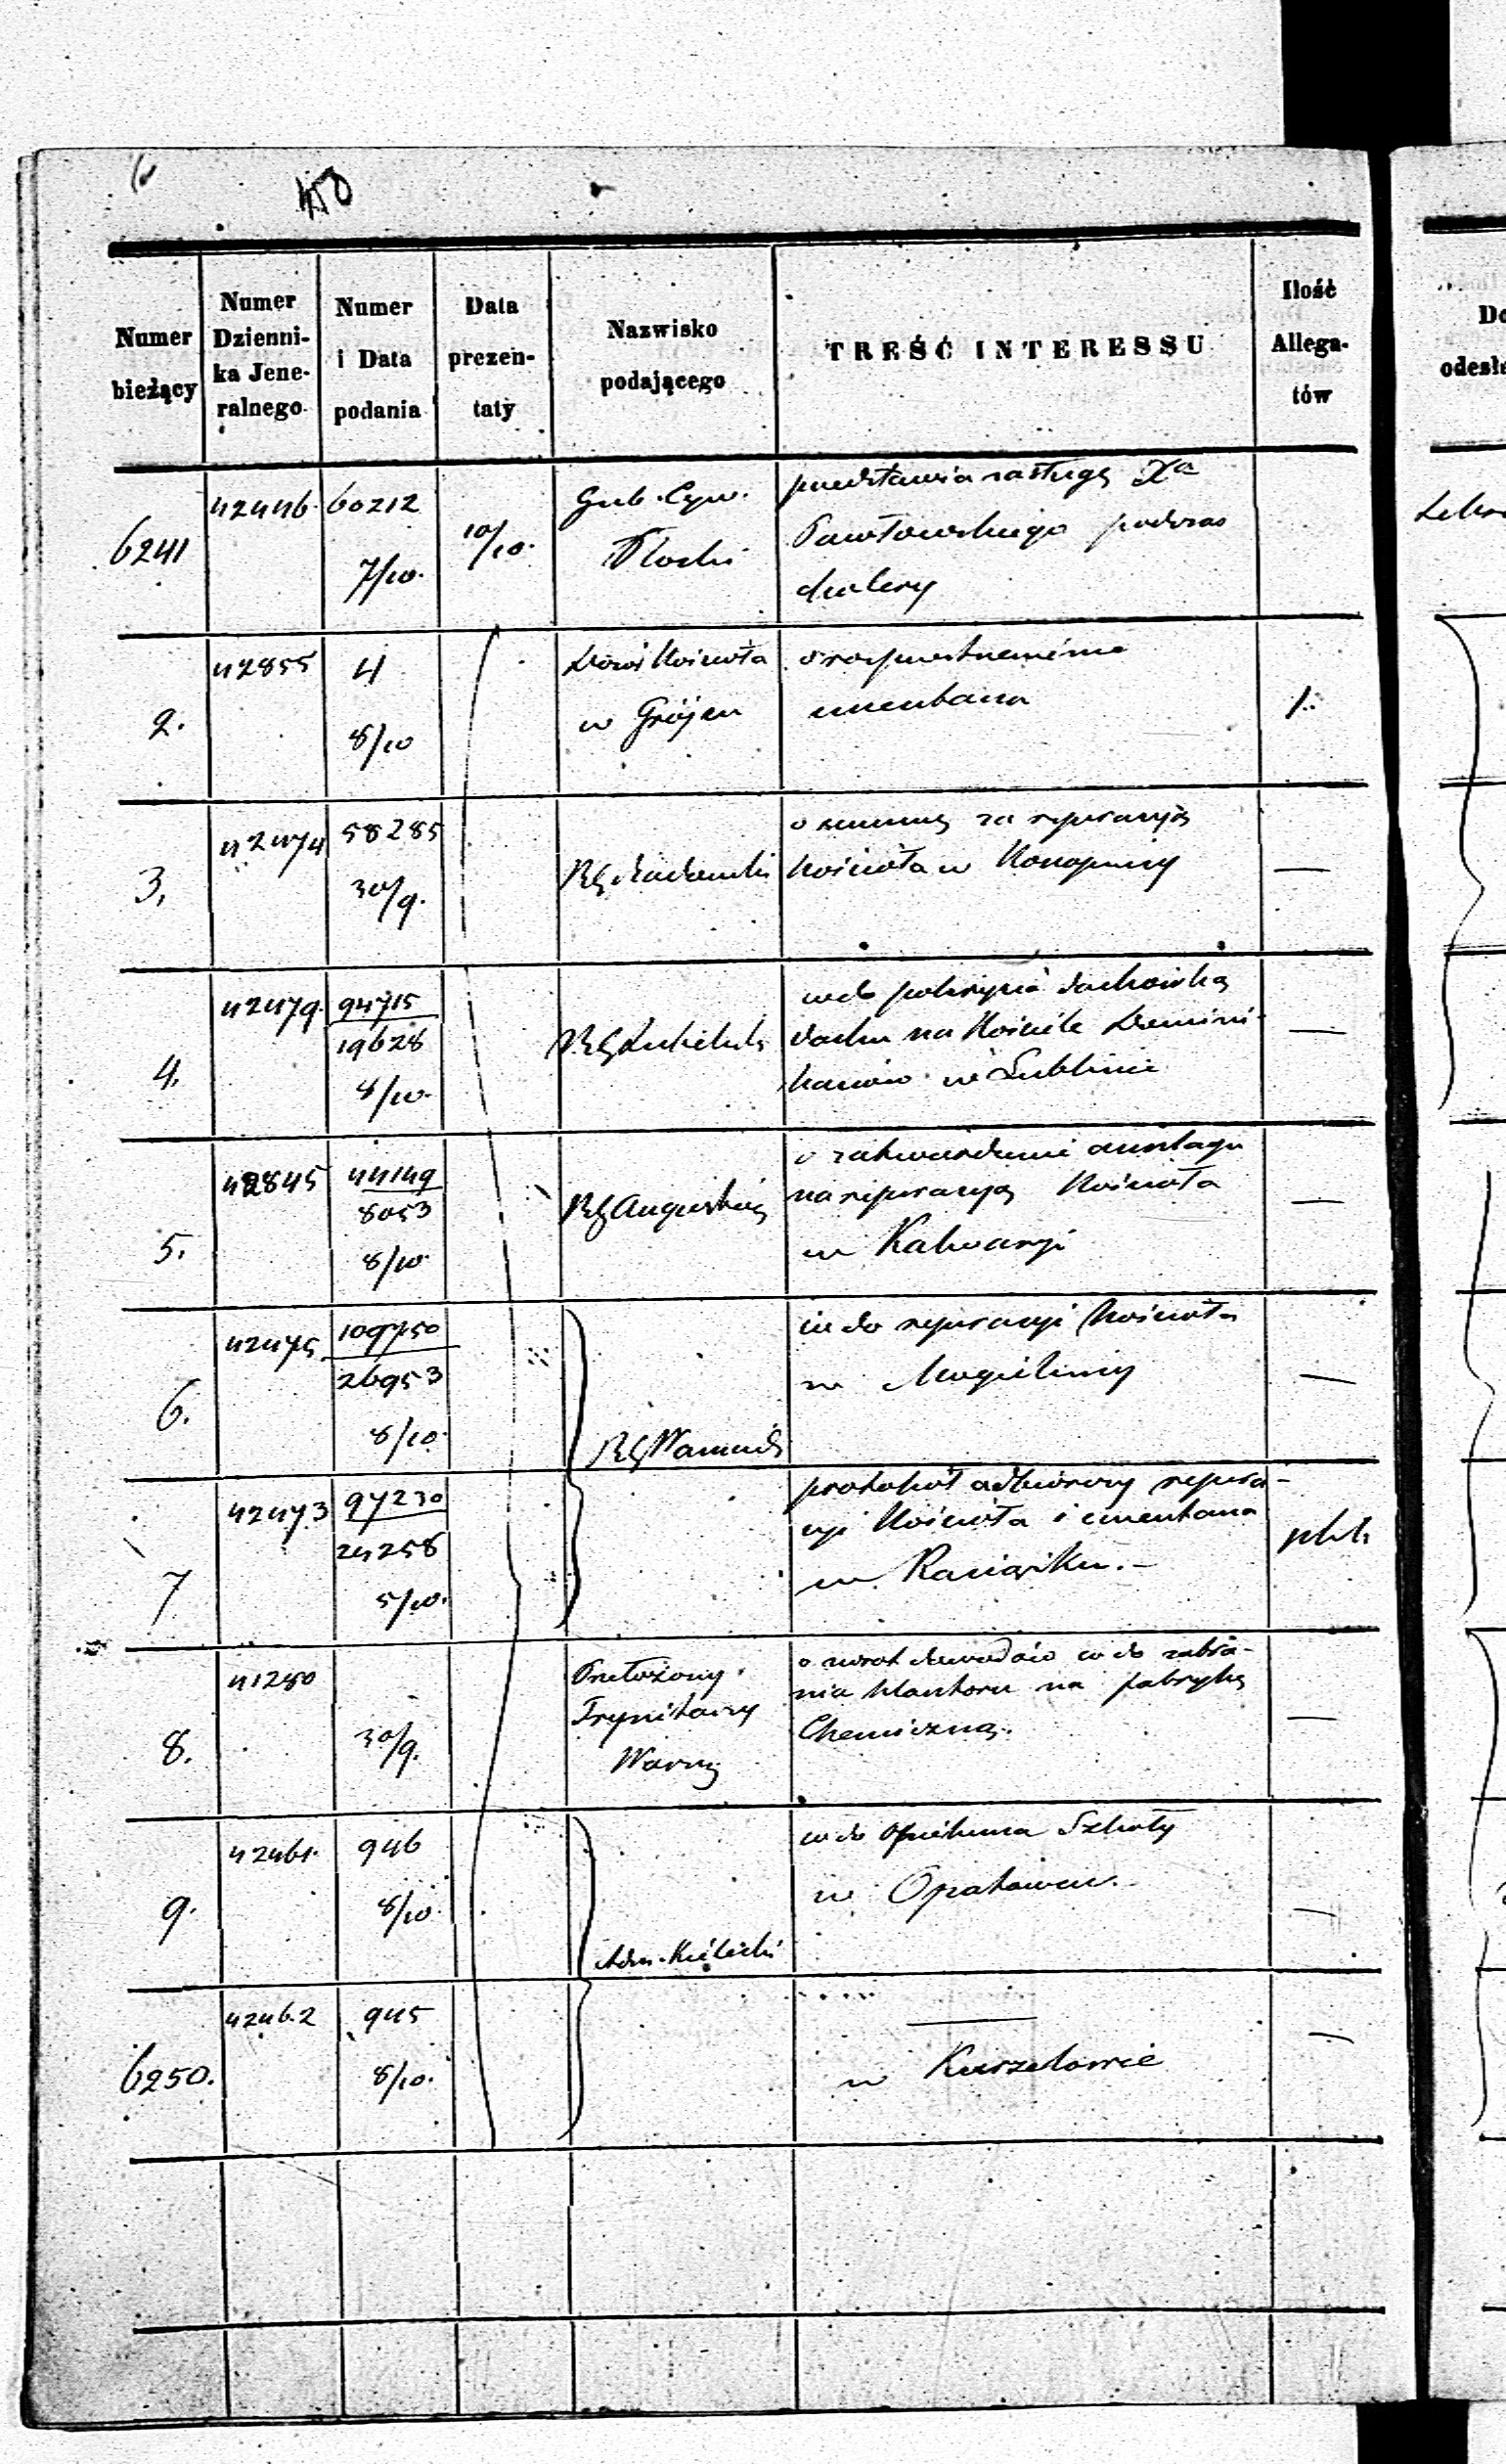 450
Numer bieżący
Numer Dzienni-
ka Jene-
ralnego
Numer i Data podania
Data prezen-
taty
Nazwisko podającego
TREŚĆ INTERESSU
Ilość Allega-
tów
6241
42446
60212
7/10.
10/10.
Gub. Cyw.
Płocki
przedstawia zasługę Xa
Pawłowskiego podczas
cholery
2.
42855
4
8/10
Dozór Kościoła
w Grójcu
o rozprzestrzenienie
cmentarza
1.
3.
42474
58285
30/9.
RG Radomski
o summę za reperacyą
Kościoła w Konopnicy
—
4.
42479.
94715
19628
8/10.
RG Lubelski
co do pokrycia dachówką
dachu na Kościele Domini-
kanów w Lublinie
—
5.
42845
44149
8053
8/10.
RG Augustows
o zatwierdzenie anszlagu
na reperacyą Kościoła
w Kalwaryi
—
6.
42475
109750
26953
8/10.
RG Warszaws
co do reperacyi Kościoła
w Mogielnicy
—
7
42473
97230
24258
5/10.
protokół odbiorczy repera-
cyi Kościoła i cmentarza
w Raciążku.—
plik
8.
41280
30/9.
Przełożony
Trynitarzy
Warsz
o zwrot dowodów co do zabra-
nia klasztoru na fabrykę
Chemiczną.
—
9.
42461.
946
8/10.
Adm. Kielecki
co do Opiekuna Szkoły
w Opatowcu.
—
6250.
42462
945
8/10.
—
w Kurzelowie
—
Do
odesła